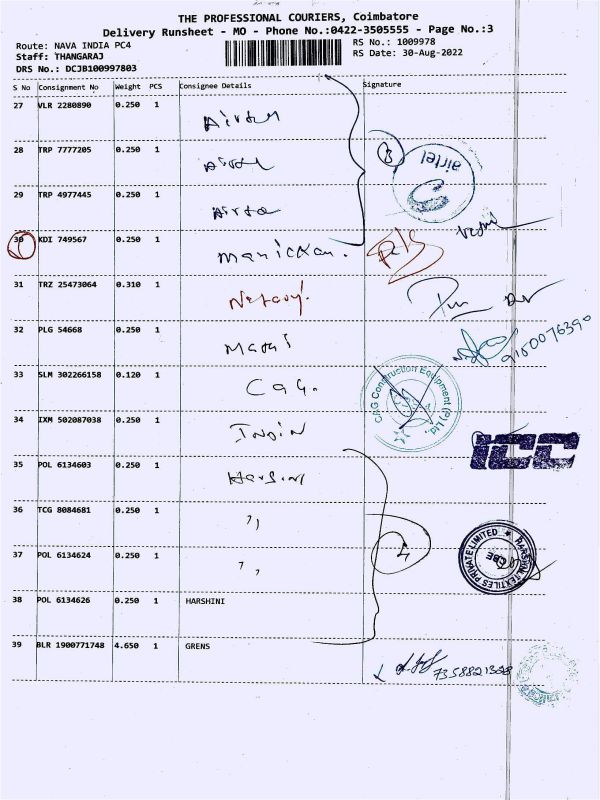 THE PROFESSIONAL COURIERS, Coimbatore
Delivery Runsheet - MO - Phone No.:0422-3505555 - Page No.:3
Route: NAVA INDIA PC4 RS No.: 1009978
Staff: THANGARAJ RS Date: 30-Aug-2022
DRS No.: DCJB100997803
S No Consignment No Weight PCS Consignee Details Signature
27 VLR 2280890 0.250 1 Airtel
28 TRP 7777205 0.250 1 Airtel
airtel
29 TRP 4977445 0.250 1 Airtel
30 KDI 749567 0.250 1 Manickam.
31 TRZ 25473064 0.310 1
32 PLG 54668 0.250 1
9150076390
33 SLM 302266158 0.120 1 CAG.
CAG Construction Equipment (P) Ltd.
34 IXM 502087038 0.250 1
ICC
35 POL 6134603 0.250 1 Harsini
36 TCG 8084681 0.250 1 ,,
4
37 POL 6134624 0.250 1 ,,
HARSHNI TEXTILES PRIVATE LIMITED
CBE
38 POL 6134626 0.250 1 HARSHINI
39 BLR 1900771748 4.650 1 GRENS
7358821328